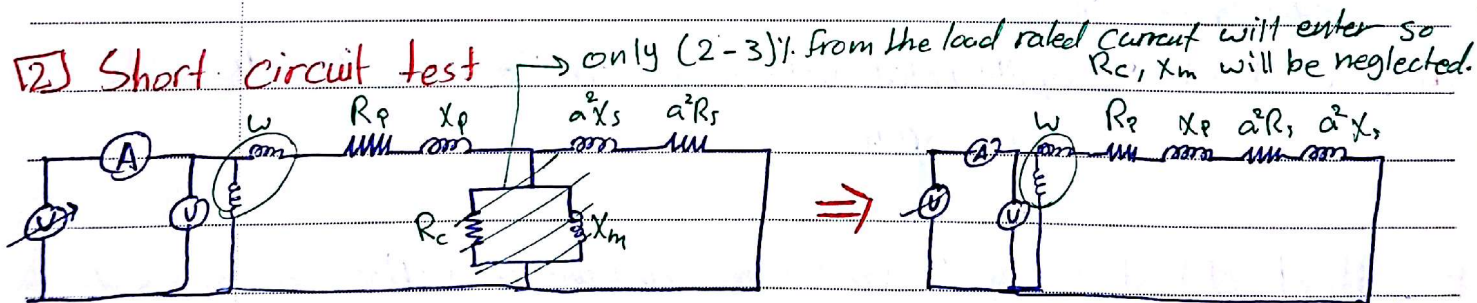 [2] Short circuit test → only (2-3)% from the load rated current will enter so
Rc, Xm will be neglected.
W Rp Xp a²Xs a²Rs
A V V Rc Xm
⇒
W Rp Xp a²Rs a²Xs
A V V